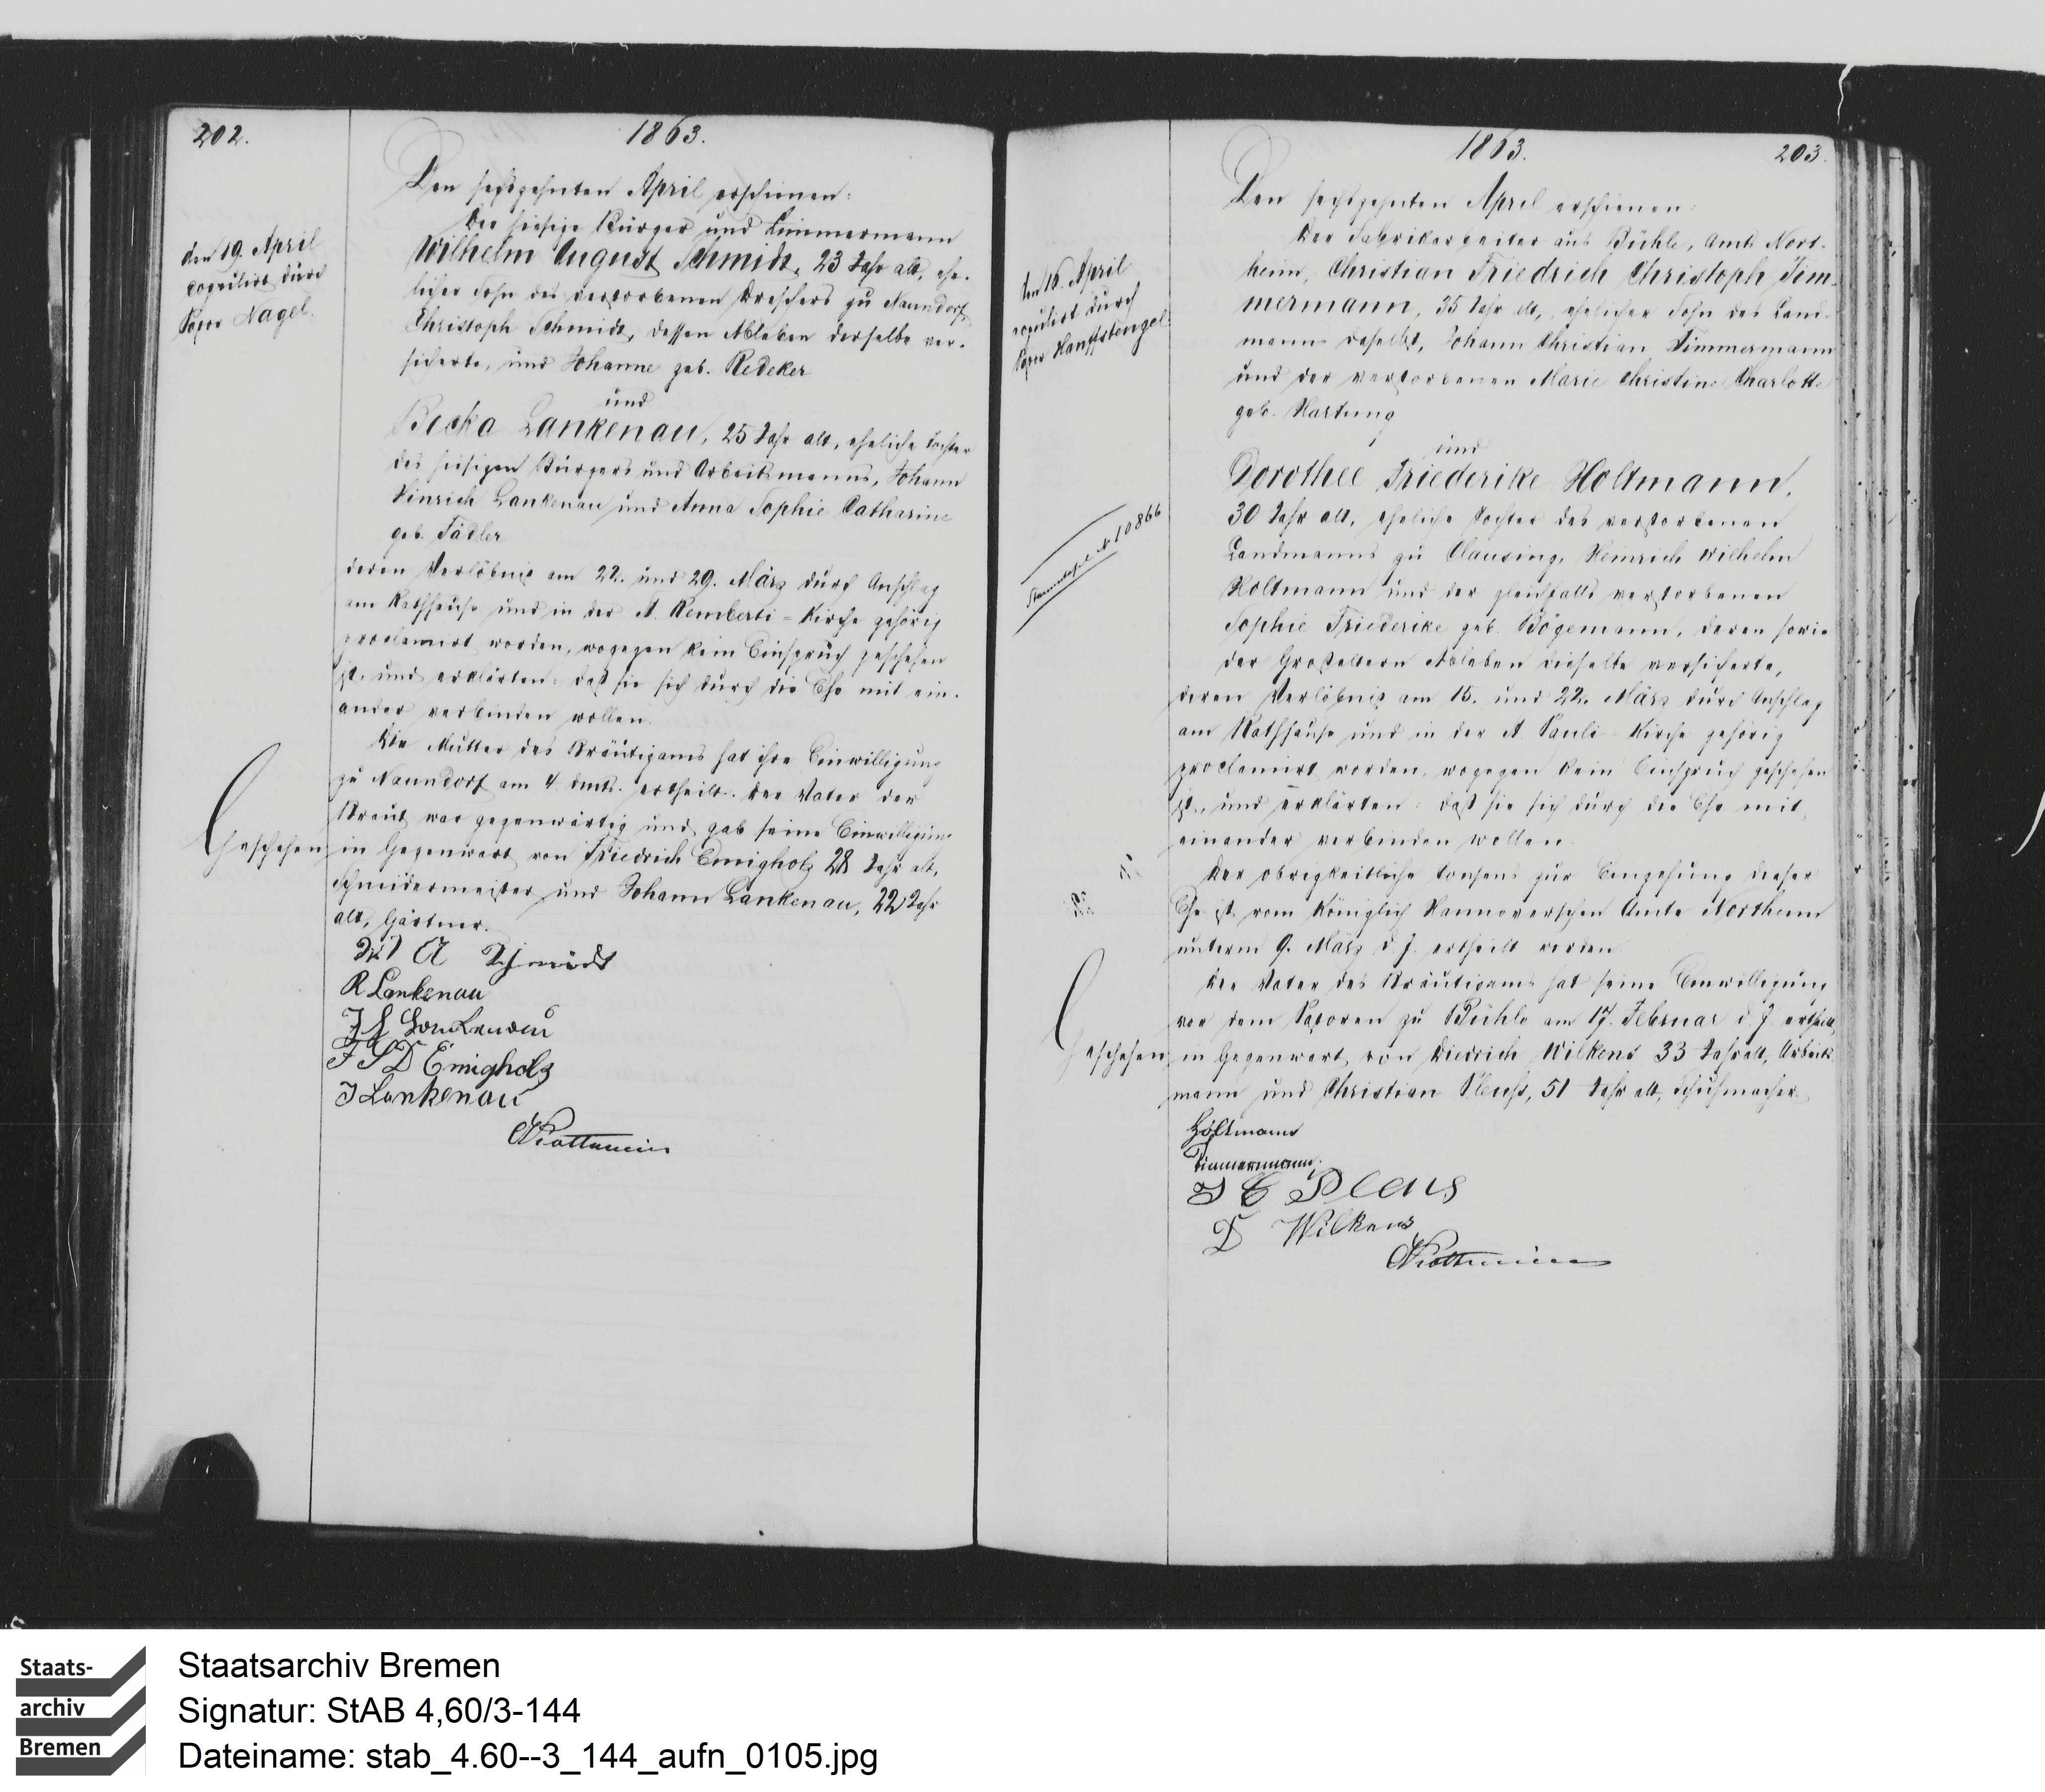 202.
1863.
den 19. April
copulirt durch
Pastor Nagel.
Den sechszehnten April erschienen:
Der hiesige Bürger und Zimmermann
Wilhelm August Schmidt, 23 Jahr alt, ehe-
licher Sohn des verstorbenen Dreschers zu Naundorf,
Christoph Schmidt, dessen Ableben derselbe ver-
sicherte, und Johanne geb. Redeker
und
Becka Lankenau, 25 Jahr alt, eheliche Tochter
des hiesigen Bürgers und Arbeitsmanns, Johann
Hinrich Lankenau und Anna Sophie Catharine
geb. Tädler
deren Verlöbniß am 22. und 29. März durch Anschlag
am Rathhause und in der St. Remberti-Kirche gehörig
proclamirt worden, wogegen kein Einspruch geschehen
ist, und erklärten: daß sie sich durch die Ehe mit ein-
ander verbinden wollen.
Die Mutter des Bräutigams hat ihre Einwilligung
zu Naundorf am 4. dmts. ertheilt. Der Vater der
Braut war gegenwärtig und gab seine Einwilligung
Geschehen in Gegenwart von Friedrich Emigholz 28 Jahr alt,
Schneidermeister und Johann Lankenau, 22 Jahr
alt, Gärtner.
A Schmidt
R Lankenau
J H Lankenau
F D Emigholz
J Lankenau
1863.
203.
den 16. April
copulirt durch
Pastor Hanffstengel.
No 10866
Den sechszehnten April erschienen:
Der Fabrikarbeiter aus Bühle, Amts Nort-
heim, Christian Friedrich Christoph Tim-
mermann, 35 Jahr alt, ehelicher Sohn des Land-
manns daselbst, Johann Christian Timmermann
und der verstorbenen Marie Christine Charlotte
geb. Hartung
und
Dorothee Friederike Holtmann,
30 Jahr alt, eheliche Tochter des verstorbenen
Landmanns zu Clausing, Heinrich Wilhelm
Holtmann und der gleichfalls verstorbenen
Sophie Friederike geb. Bögemann, deren sowie
der Großeltern Ableben dieselbe versicherte,
deren Verlöbniß am 15. und 22. März durch Anschlag
am Rathhause und in der St. Pauli-Kirche gehörig
proclamirt worden, wogegen kein Einspruch geschehen
ist, und erklärten: daß sie sich durch die Ehe mit
einander verbinden wollen.
Der obrigkeitliche Consens zur Eingehung dieser
Ehe ist vom Königlich Hannoverschen Amte Northeim
unterm 9. März d. J. ertheilt worden.
Der Vater des Bräutigams hat seine Einwilligung
vor dem Pastoren zu Bühle am 17. Februar d. J. ertheilt
Geschehen in Gegenwart von Diedrich Wilkens 33 Jahr alt, Arbeits-
mann und Christian Pleuß, 51 Jahr alt, Schuhmacher.
Holtmann
Timmermann.
J C Pleus
D Wilkens
Staats-
archiv
Bremen
Staatsarchiv Bremen
Signatur: StAB 4,60/3-144
Dateiname: stab_4.60--3_144_aufn_0105.jpg